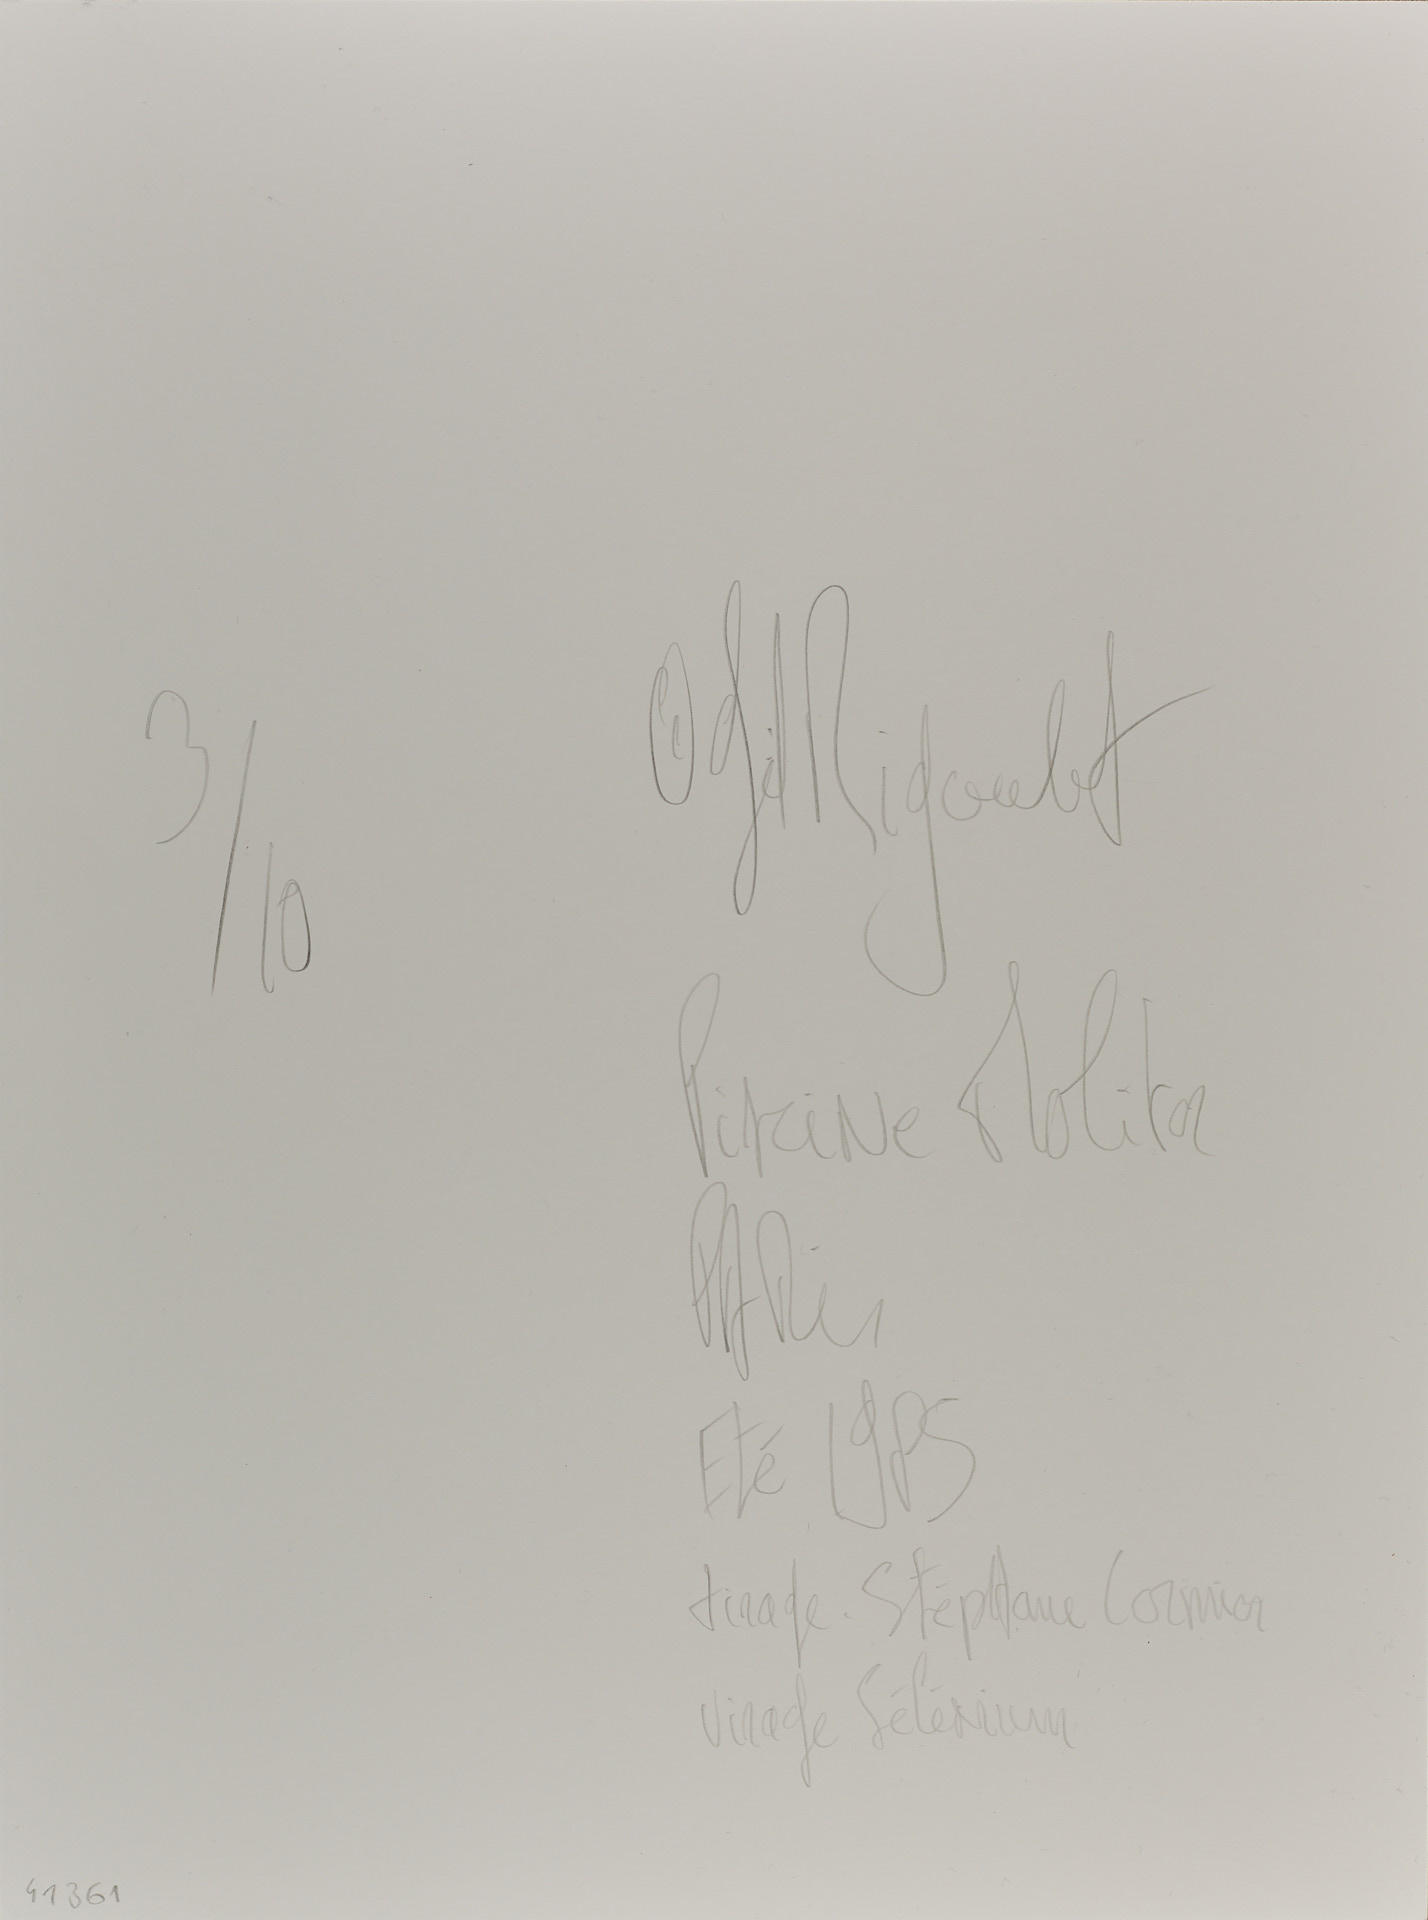 3/10
© Gil Rigoulet
Piscine Molitor
PARis
Eté 1985
tirage. Stéphane Cormier
virage Sélénium
41361